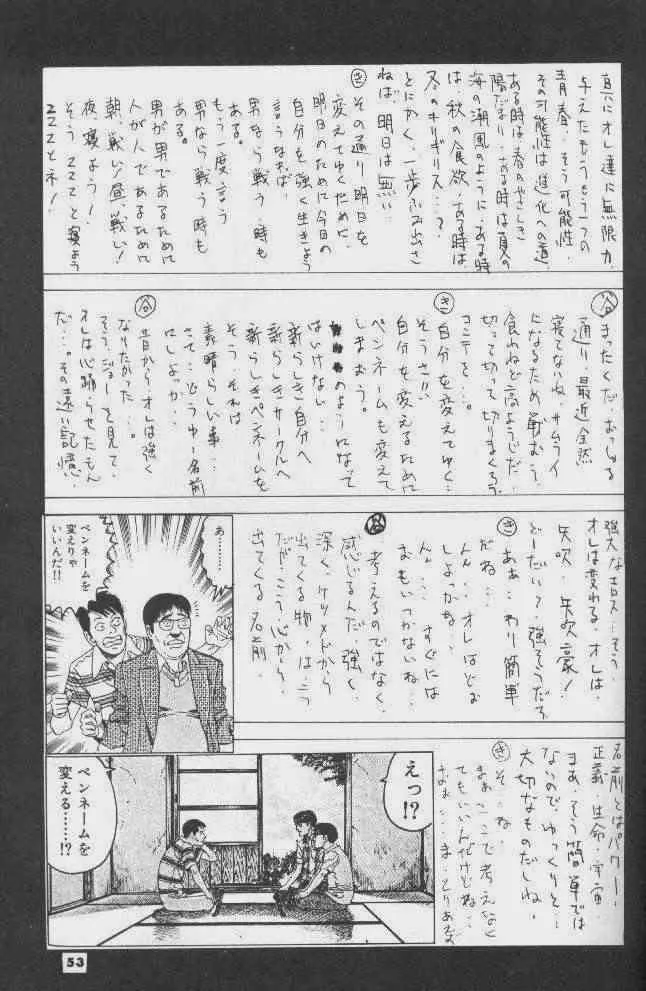 真にオレ達に無限力、
与えたもうもう一つの
青春。そう可能性。
その可能性は進化への道、
ある時は春のやさしき
陽だまり。ある時は夏の
海の潮風のように、ある時
は、秋の食欲、ある時は、
冬のキリギリス…？
とにかく、一歩ふみ出さ
ねば、明日は無い…
き その通り明日を
変えてゆくために、
明日のために今日の
自分を強く生きよう
言うなれば、
男なら戦う時も
ある。
もう一度言う
男なら戦う時も
ある。
男が男であるために
人が人であるために
朝、戦い！昼、戦い！
夜、寝よう！
そう、ZZZと寝よう
ZZZとネ！
合 まったくだ、おっしゃる
通り、最近全然
寝てないね、サムライ
になるため戦おう、
食わねど高ようじだ…
切って切って切りまくろう、
コンテを…
き 自分を変えてゆく…
そうさ!!
自分を変えるために
ペンネームも変えて
しまおう。
のようになって
はいけない…
新らしき自分へ
新らしきサークルへ
新らしきペンネームを
そう…それは
素晴らしい事…
さて…どうゆー名前
にしよっか…
合 昔からオレは強く
なりたかった…
そう、ジョーを見て、
オレは心踊らせたもん
だ…。その遠い記憶、
強大なエロス…そう、
オレは変わる、オレは、
矢吹、矢吹豪！
どーだい？強そうだろ
き ああ…わり簡単
だね…
んん…オレはどお
しよっかな…
んん…すぐには
おもいつかないね…
合 考えるのではなく、
感じるんだ、強く
深く、ケツメドから
出てくる物、は…う
だが…こう、心から
出てくる名前、
あ……。
ペンネームを
変えりゃ
いいんだ!!
名前とはパワー！
正義、生命、宇宙
まあ、そう簡単では
ないので、ゆっくりと…
大切なものだしね。
き そ…ね、
まぁ、ここで考えなく
てもいいんだけどね…
えっ!?
ペンネームを
変える……!?
53